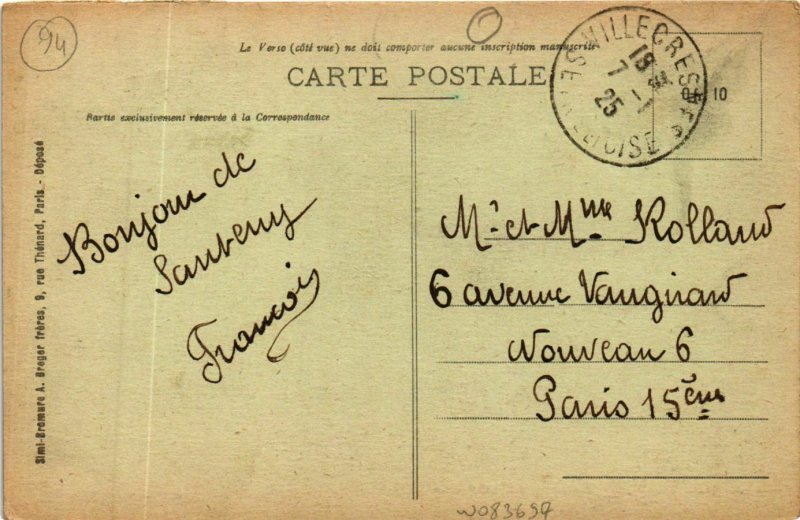 94
Le Verso (côté vue) ne doit comporter aucune inscription manuscrite
CARTE POSTALE
Partie exclusivement réservée à la Correspondance
VILLECRESNES
SEINE-ET-OISE
19
7 - 1
25
10
Simi-Bromure A. Breger frères, 9, rue Thénard, Paris - Déposé
Bonjour de
Santeny
François
Mr et Mme Rolland
6 avenue Vaugirard
Nouveau 6
Paris 15ème
W083697